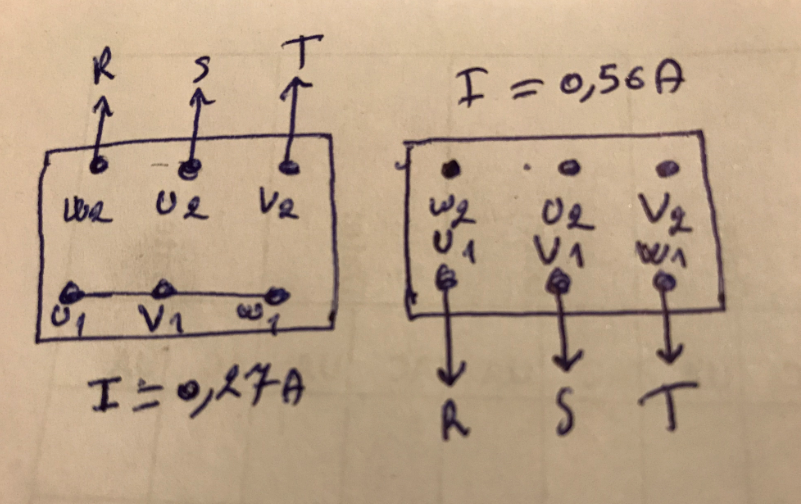 R S T
W2 U2 V2
U1 V1 W1
I = 0,27A
I = 0,56A
W2 U2 V2
U1 V1 W1
R S T